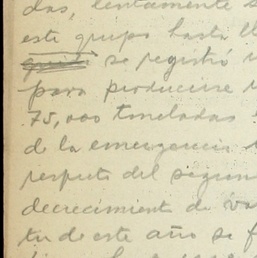 das, lentamente
este grupo hasta
se registró
para producirse
75,000 toneladas
de la emergencia
respecto del segun
decrecimiento de va
tu de este año se